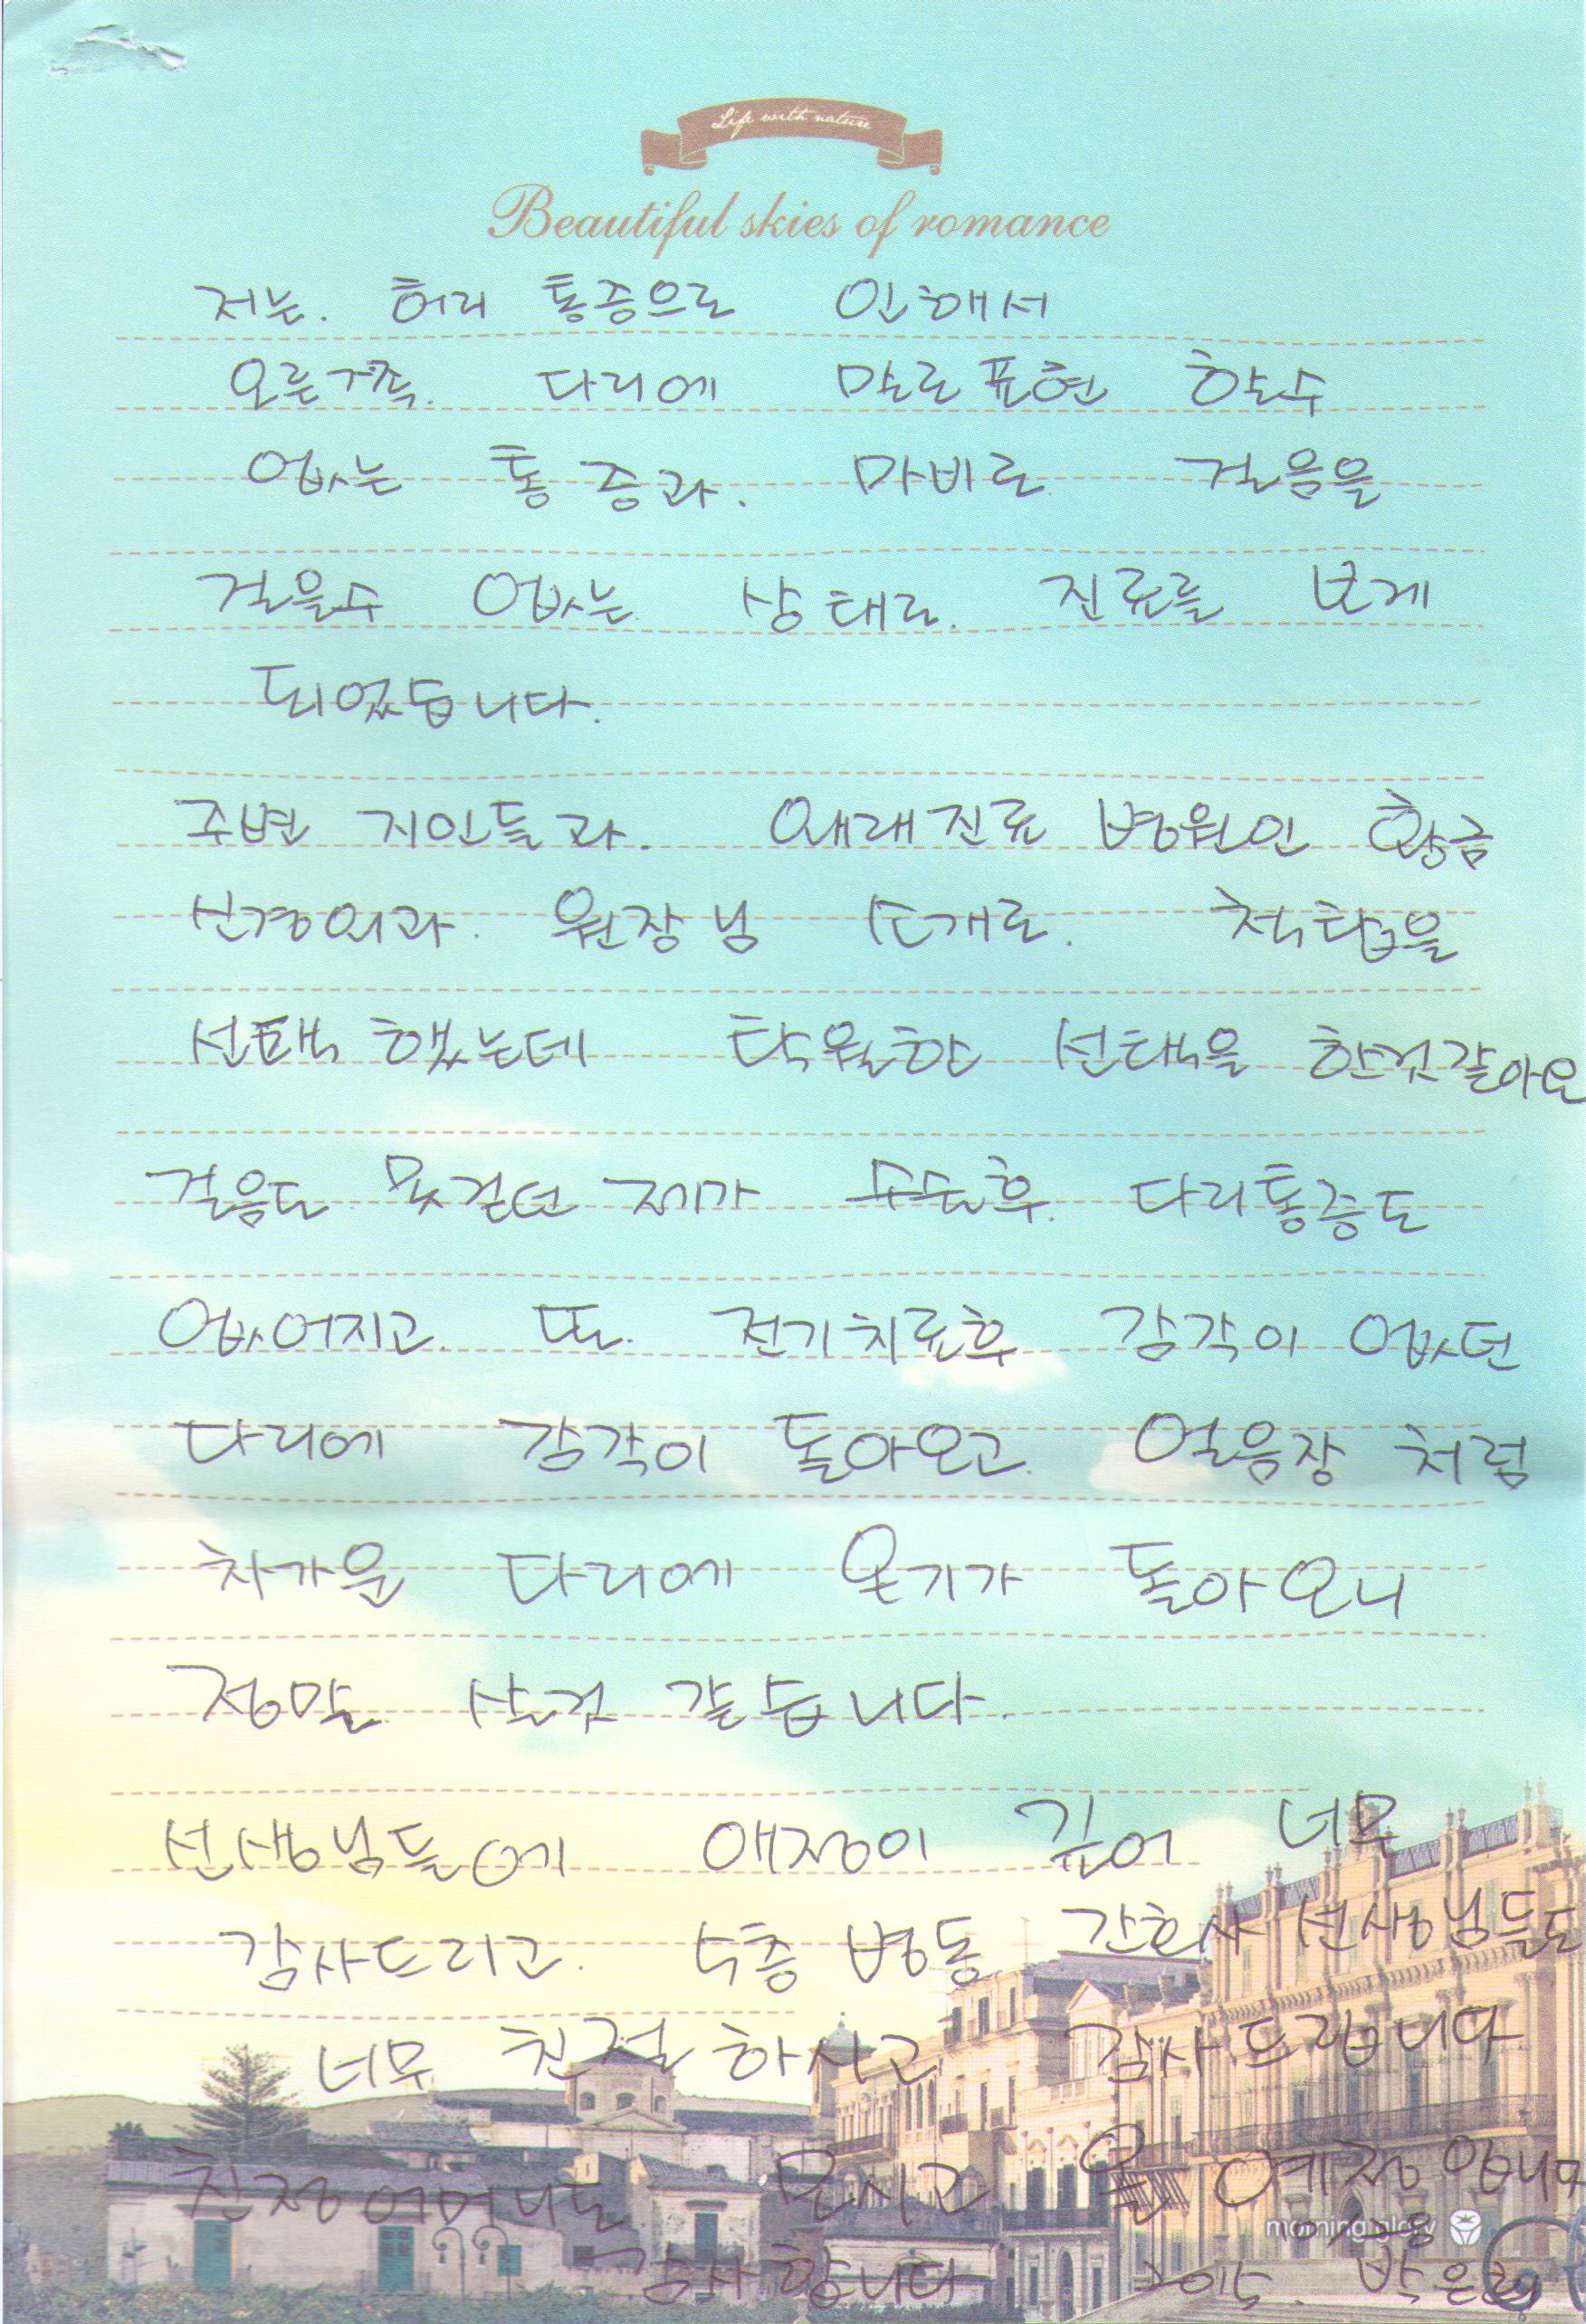 Life with nature
Beautiful skies of romance
저는. 허리 통증으로 인해서
오른쪽. 다리에 말로표현 할수
없는 통증과. 마비로 걸음을
걸을수 없는 상태로. 진료를 보게
되었습니다.
주변 지인들과. 외래진료 병원인 황금
신경외과. 원장님 소개로. 척탑을
선택했는데 탁월한 선택을 한것같아요
걸음도 못걷던 제가 수술후. 다리통증도
없어지고. 또. 전기치료후 감각이 없던
다리에 감각이 돌아오고. 얼음장 처럼
차가운 다리에 온기가 돌아오니
정말 살것 같습니다.
선생님들에 애정이 깊어 너무
감사드리고. 5층 병동 간호사 선생님들도
너무 친절하시고 감사드립니다
친정어머니도 모시고 올 예정입니다
morning glory
감사합니다 박은희